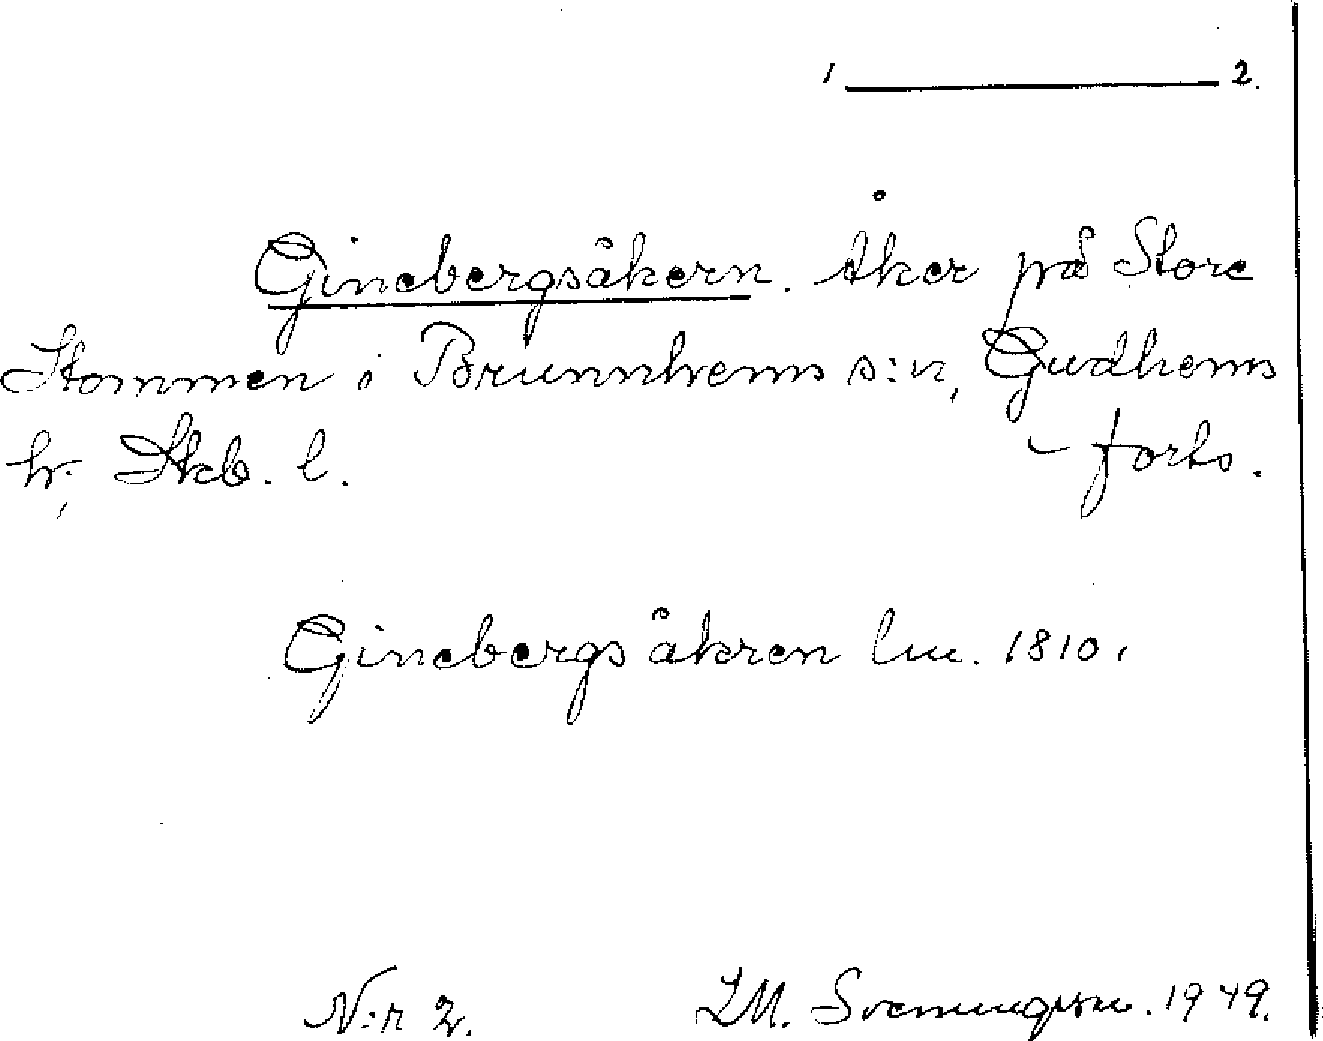 1 ——— 2.
Ginebergsåkern. Åker på Store
Stommen i Brunnhems s:n, Gudhems
hr, Skb. l.  – forts.
Ginebergsåkren lm. 1810.
N:r 2.  I.M. Svenungsson. 1949.